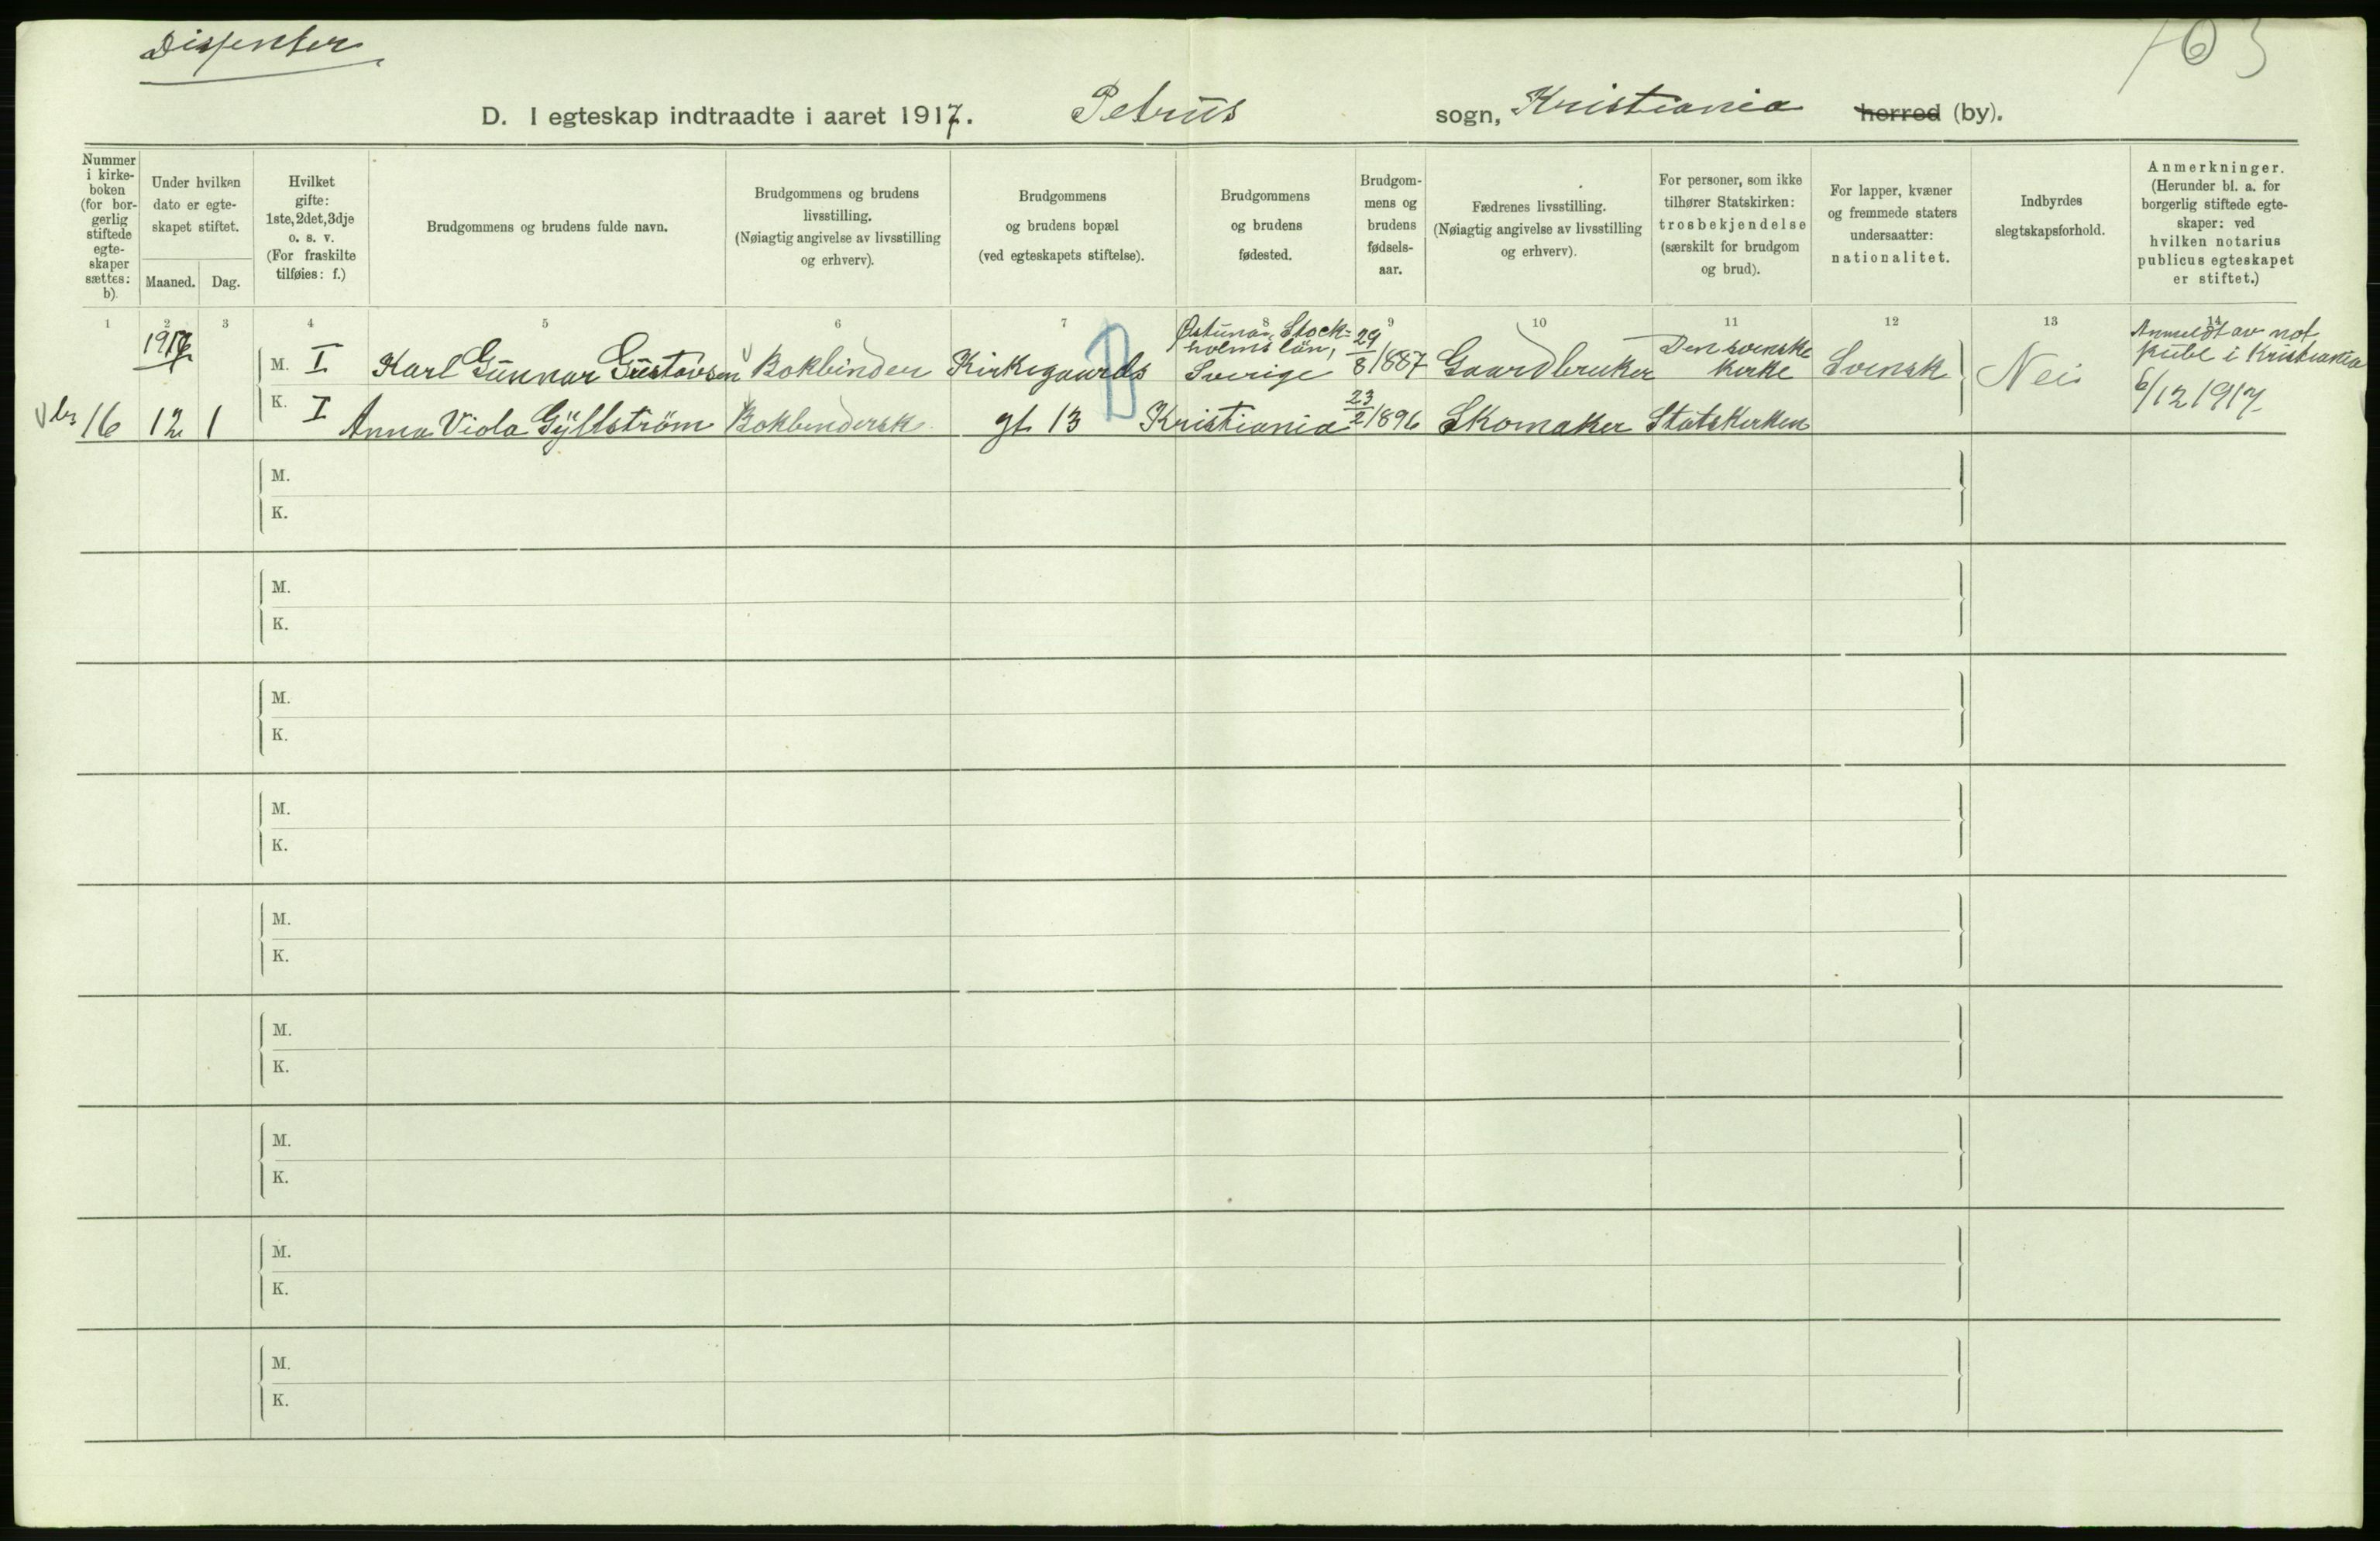 Dissenter
103
D. I egteskap indtraadte i aaret 1917. Petrus sogn, Kristiania herred (by).
Nummer i kirke-boken (for bor-gerlig stiftede egte-skaper sættes: b).
Under hvilken dato er egte-skapet stiftet.
Maaned. Dag.
Hvilket gifte: 1ste, 2det, 3dje o. s. v. (For fraskilte tilføies: f.)
Brudgommens og brudens fulde navn.
Brudgommens og brudens livsstilling. (Nøiagtig angivelse av livsstilling og erhverv).
Brudgommens og brudens bopæl (ved egteskapets stiftelse).
Brudgommens og brudens fødested.
Brudgom-mens og brudens fødsels-aar.
Fædrenes livsstilling. (Nøiagtig angivelse av livsstilling og erhverv).
For personer, som ikke tilhører Statskirken: trosbekjendelse (særskilt for brudgom og brud).
For lapper, kvæner og fremmede staters undersaatter: nationalitet.
Indbyrdes slegtskapsforhold.
Anmerkninger. (Herunder bl. a. for borgerlig stiftede egte-skaper: ved hvilken notarius publicus egteskapet er stiftet.)
1 2 3 4 5 6 7 8 9 10 11 12 13 14
1917
M. I Karl Gunnar Gustavsen Bokbinder Kirkegaards Østuna, Stock-holms län, Sverige 29/8 1887 Gaardbruker Den svenske kirke Svensk Nei Anmeldt av not publ i Kristiania 6/12 1917
16 12 1 K. I Anna Viola Gyllström Bokbindersk gt 13 Kristiania 23/2 1896 Skomaker Statskirken
B
M.
K.
M.
K.
M.
K.
M.
K.
M.
K.
M.
K.
M.
K.
M.
K.
M.
K.